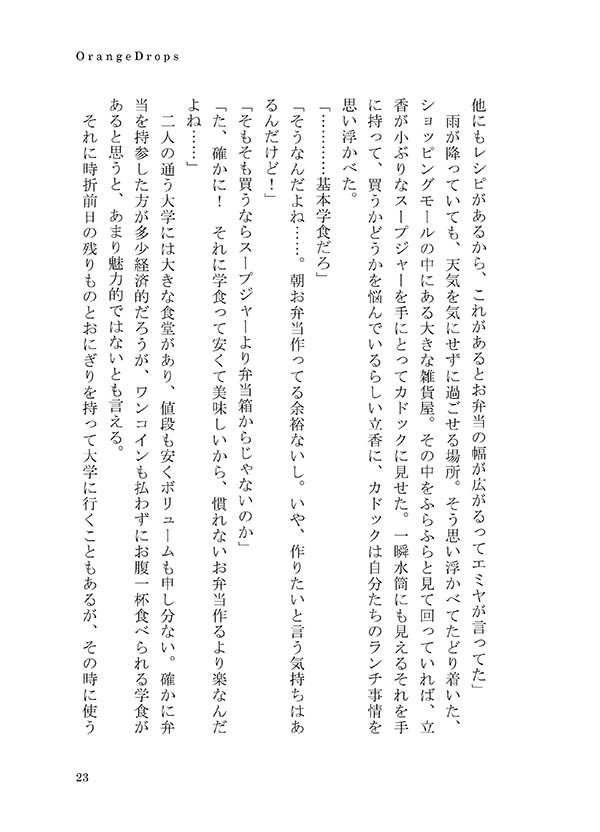 OrangeDrops
他にもレシピがあるから、これがあるとお弁当の幅が広がるってエミヤが言ってた」
　雨が降っていても、天気を気にせずに過ごせる場所。そう思い浮かべてたどり着いた、
ショッピングモールの中にある大きな雑貨屋。その中をふらふらと見て回っていれば、立
香が小ぶりなスープジャーを手にとってカドックに見せた。一瞬水筒にも見えるそれを手
に持って、買うかどうかを悩んでいるらしい立香に、カドックは自分たちのランチ事情を
思い浮かべた。
「…………基本学食だろ」
「そうなんだよね……。朝お弁当作ってる余裕ないし。いや、作りたいと言う気持ちはあ
るんだけど！」
「そもそも買うならスープジャーより弁当箱からじゃないのか」
「た、確かに！　それに学食って安くて美味しいから、慣れないお弁当作るより楽なんだ
よね……」
　二人の通う大学には大きな食堂があり、値段も安くボリュームも申し分ない。確かに弁
当を持参した方が多少経済的だろうが、ワンコインも払わずにお腹一杯食べられる学食が
あると思うと、あまり魅力的ではないとも言える。
　それに時折前日の残りものとおにぎりを持って大学に行くこともあるが、その時に使う
23